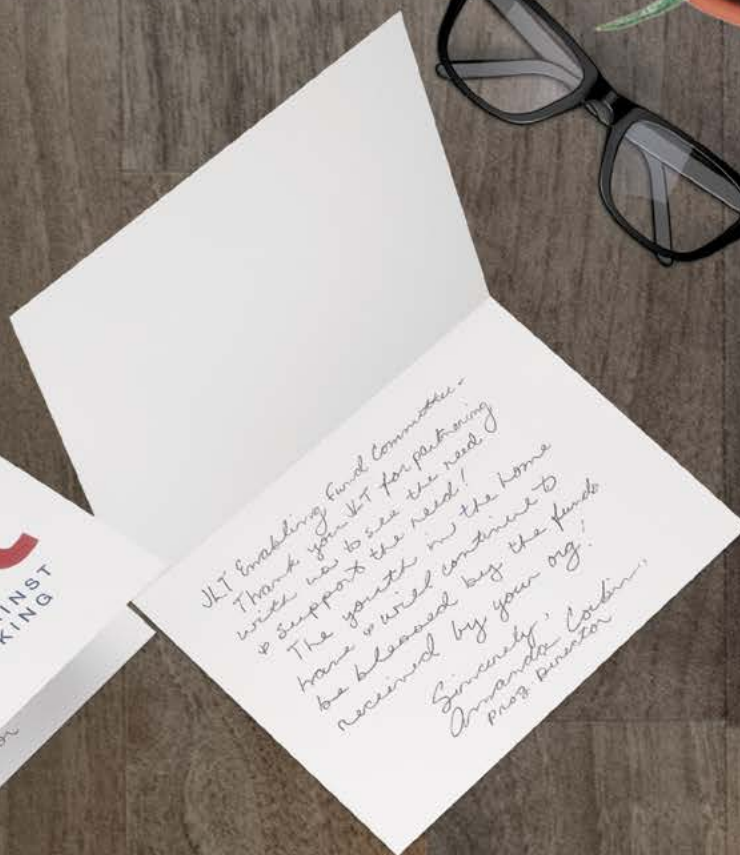 INST
KING
or
JLT Enabling Fund Committee -
Thank you JLT for partnering
with us to see the need
& support the need!
The youth in the home
have & will continue to
be blessed by the funds
received by your org!
Sincerely,
Amanda Corbin,
Prog. Director